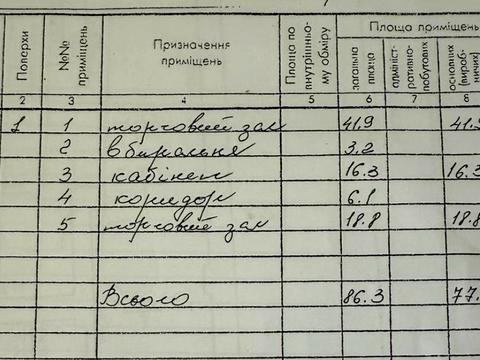 Поверхи
№№ приміщень
Призначення приміщень
Площа по внутрішньо-му обміру
Площа приміщень
загальна площа
адмініст-ративно-побутових
основних (вироб-ничих)
2 3 4 5 6 7 8
1 1 торговий зал 41.9 41.9
2 вбиральня 3.2
3 кабінет 16.3 16.3
4 коридор 6.1
5 торговий зал 18.8 18.8
Всього 86.3 77.